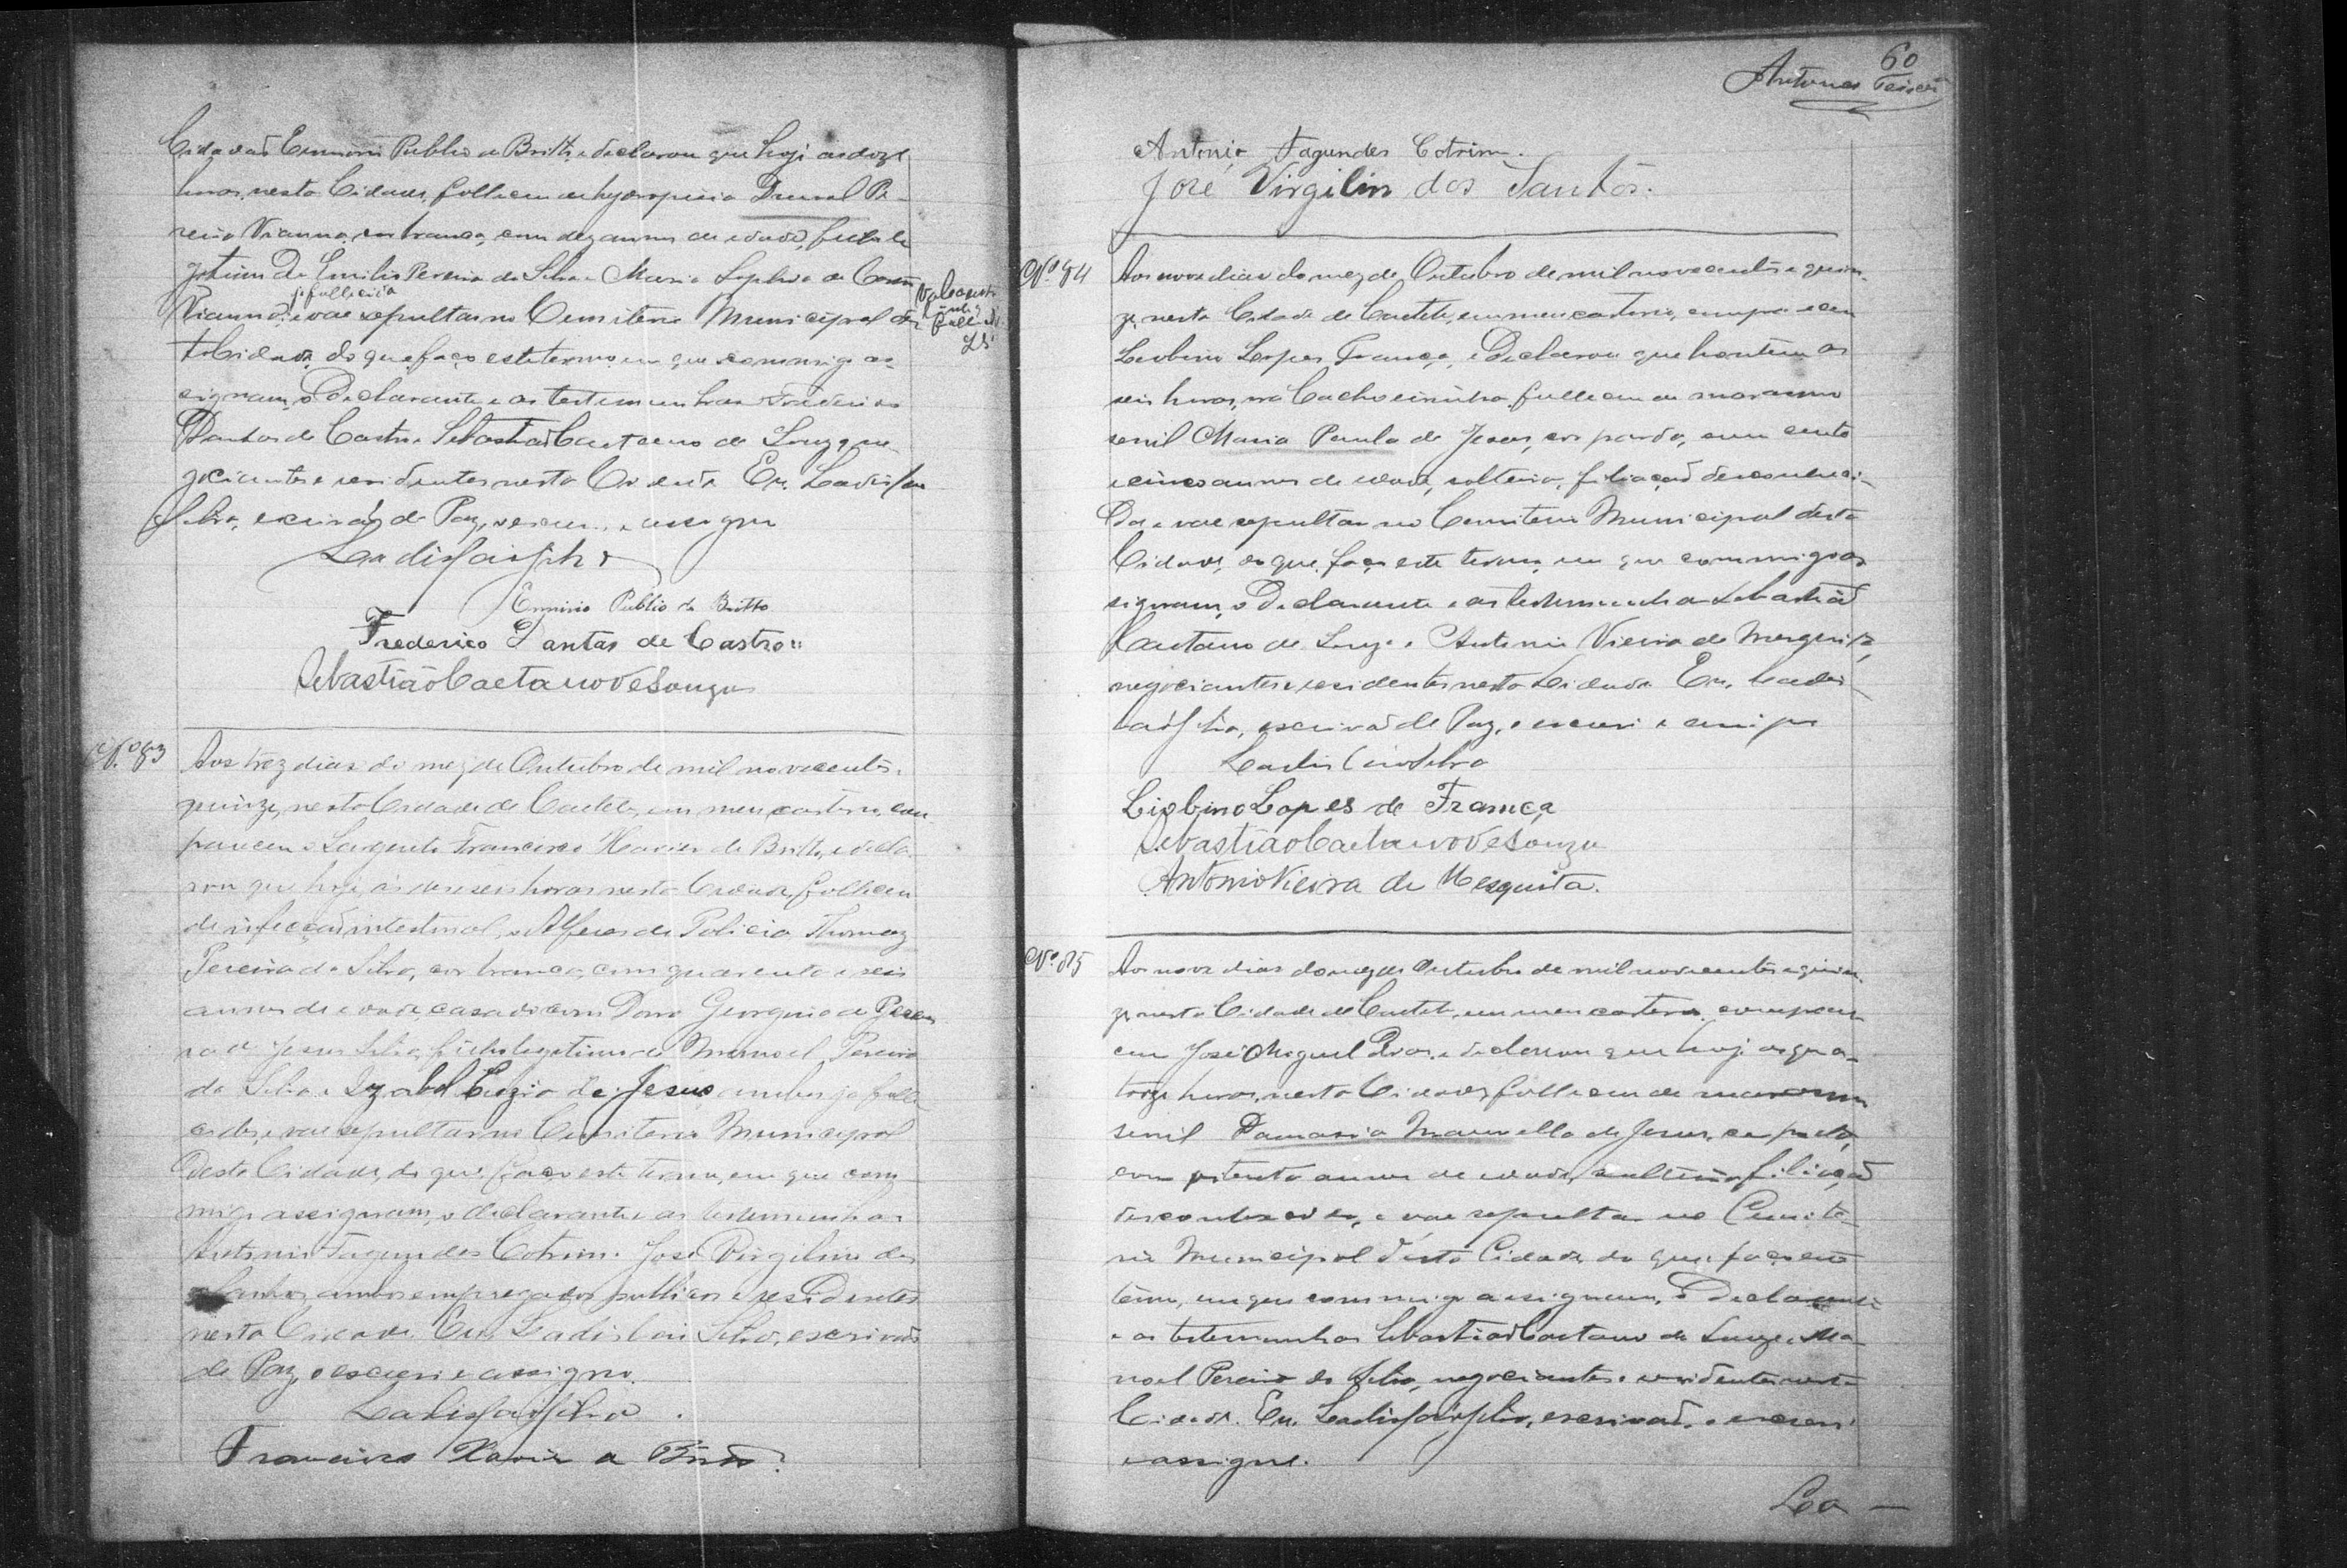 Cidadão Erminio Publio de Britto e declarou que hoje as doze
horas, nesta Cidade, falleceu de hydropisia Durval Pe-
reira Vianna, cor branca, com dez annos de edade, filho le
gitimo de Emilio Pereira da Silva e Maria Sophia de Castro
já fallecida
Vianna, e vae sepultar no Cemiterio Municipal des
Vale a entre
linha
fallecida
LS
ta Cidade, do que faço este termo em que commigo as-
signam, o Declarante e as testemunhas Frederico
Dantas de Castro e Sebastião Caetano de Souza, ne-
gociantes e residentes nesta Cidade Eu, Ladislau
Silva, escrivão de Paz, escrevi e assigno
Ladislau Silva
Erminio Publio de Britto
Frederico Dantas de Castro
Sebastião Caetano de Souza
Nº 83
Aos trez dias do mez de Outubro de mil novecentos e
quinze, nesta Cidade de Caeteté, em meu cartorio, com
pareceu o Sargento Francisco Xavier de Britto, e decla-
rou que hoje ás deseseis horas nesta Cidade, falleceu
de infecção intestinal, o Alferes de Policia Thomaz
Pereira da Silva, cor branca, com quarenta e seis
annos de edade, casado com Dona Georgina de
Jesus Silva, filho legitimo de Manoel Pereira
da Silva e Izabel de Jesus ambos ja falle
cidos, e vae sepultar no Cemiterio Municipal
desta Cidade, do que faço este termo, em que com
migo assignam, o declarante e as testemunhas
Antonio Fagundes Cotrim e José Virgilino dos
Santos, ambos empregados publicos e residentes
nesta Cidade Eu, Ladislau Silva, escrivão
de Paz, o escrevi e assigno.
Ladislau Silva.
Francisco Xavier de Britto
60
Antunes Teixeira
Antonio Fagundes Cotrim.
José Virgilino dos Santos.
Nº 84
Aos nove dias do mez de Outubro de mil novecentos e quin-
ze, nesta Cidade de Caeteté, em meu cartorio, compareceu
Leobino Lopes França, e Declarou que hontem as
seis horas, na Cachoeirinha falleceu de marasmo
senil Maria Paula de Jesus, cor parda, com cento
e cinco annos de edade, solteira, filiação desconheci-
da, e vae sepultar no Cemiterio Municipal desta
Cidade, do que faço este termo, em que commigo as
signam, o Declarante e as testemunhas Sebastião
Caetano de Souza e Antonio Vieira de Mesquita,
negociantes e residentes nesta Cidade Eu, Ladis-
lau Silva, escrivão de Paz, o escrevi e assigno
Ladislau Silva
Liobino Lopes de França
Sebastião Caetano de Souza
Antonio Vieira de Mesquita.
Nº 85
Aos nove dias do mez de Outubro de mil novecentos e quin-
ze nesta Cidade de Caeteté, em meu cartorio, compare-
ceu José Miguel e declarou que hoje as qua-
torze horas, nesta Cidade, falleceu de marasmo
senil Damasia Manuella de Jesus, cor preta,
com oitenta annos de edade, solteira, filiação
desconhecida, e vae sepultar no Cemite-
rio Municipal desta Cidade, do que faço este
termo, em que commigo assignam, o Declarante
e as testemunhas Sebastião Caetano de Souza e Ma-
noel Pereira da Silva, negociantes e residentes nesta
Cidade. Eu, Ladislau Silva, escrivão, o escrevi
e assigno.
La —